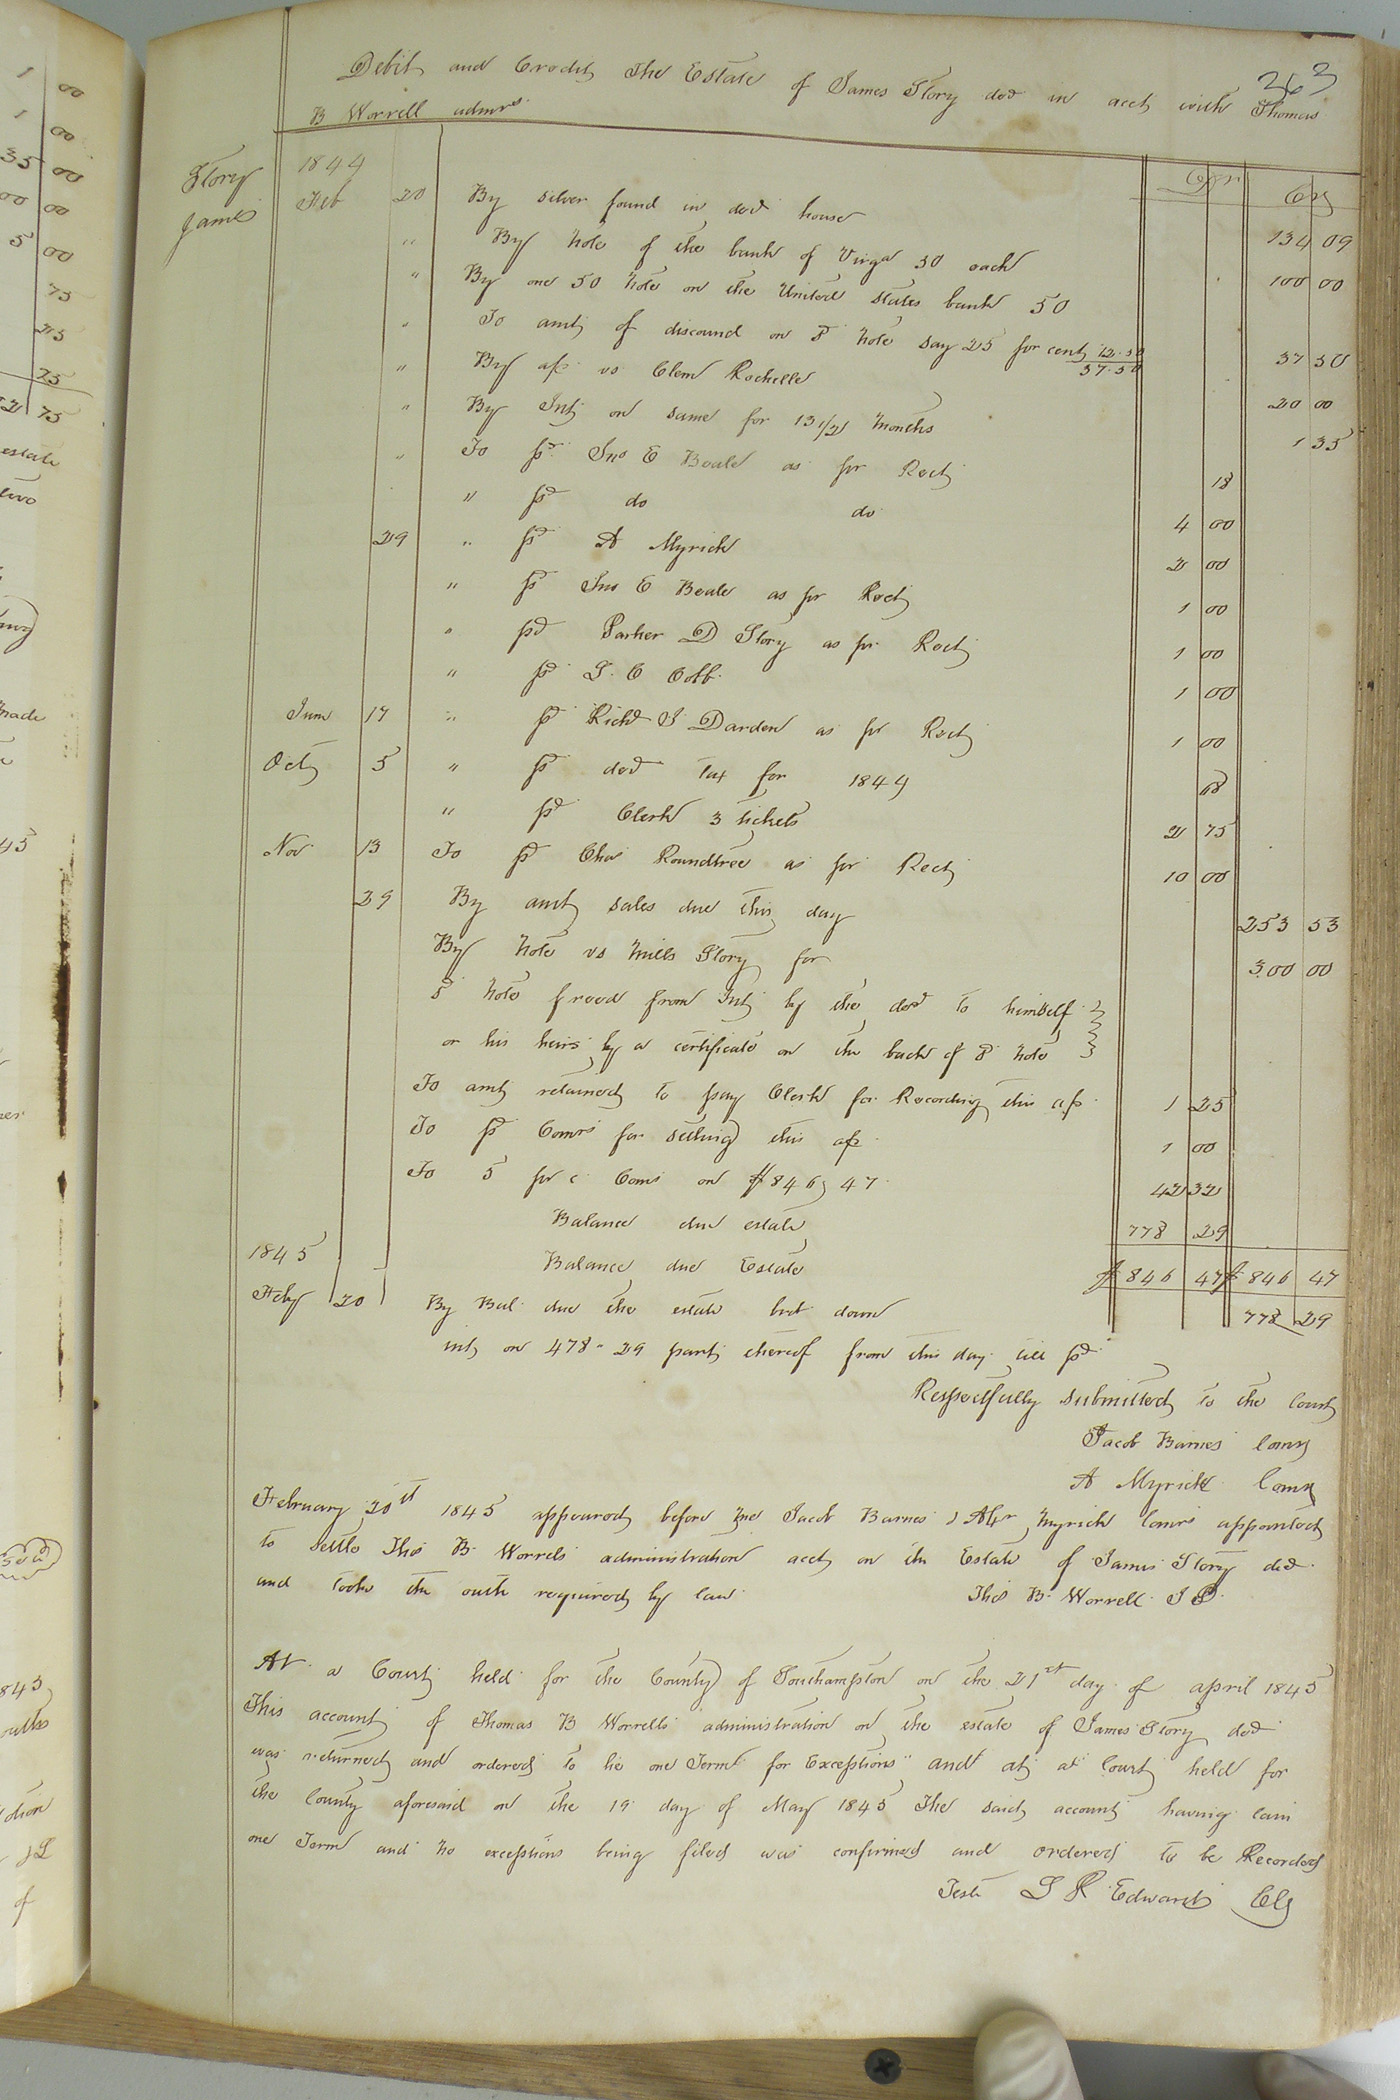 263
Debit and Credit The Estate of James Story decd in acct with Thomas
B Worrell admr
Dr Cr
Story James
1844
Feb 20 By silver found in decd house 134 09
" By note of the bank of Virga 50 each 100 00
" By one 50 note on the United States bank 50
" To amt of discound on sd note say 25 per cent 12.50 37 50
37.50
" By a/c vs Clem Rochelle 20 00
" By Int on same for 13 1/2 months 1 35
" To pd Jno E Beale as pr Rect 18
" pd do do 4 00
29 " pd A Myrick 2 00
" pd Jno E Beale as pr Rect 1 00
" pd Parker D Story as pr Rect 1 00
" pd Cobb 1 00
June 17 " pd Richd J Darden as pr Rect 1 00
Oct 5 " pd decd Tax for 1844 68
" pd Clerk 3 tickets 2 75
Nov 13 To pd Chas Roundtree as pr Rect 10 00
29 By amt sales due this day 253 53
By note vs Mills Story for 300 00
sd note freed from Int by the decd to himself
or his heirs by a certificate on the back of sd note
To amt retained to pay Clerk for Recording this a/c 1 25
To pd Comrs for settling this a/c 1 00
To 5 pr c Coms on $846, 47 42 32
Balance due estate 778 29
1845 Balance due Estate $846 47 $846 47
Feby 20 By Bal due the estate brt down 778 29
int on 478"29 part thereof from this day till pd
Respectfully submitted to the Court
Jacob Barnes Comr
A Myrick Comr
February 20th 1845 appeared before me Jacob Barnes & Alxr Myrick Comrs appointed
to settle Thos B Worrels administration acct on the Estate of James Story decd
and took the oath required by law Thos B. Worrell J P.
At a Court held for the County of Southampton on the 21st day of april 1845
This account of Thomas B Worrells administration on the estate of James Story decd
was returned and ordered to lie one Term for Exceptions" and at a Court held for
the County aforesaid on the 19 day of May 1845 The said account having lain
one Term and no exceptions being filed was confirmed and ordered to be Recorded
Teste L R Edwards Clk